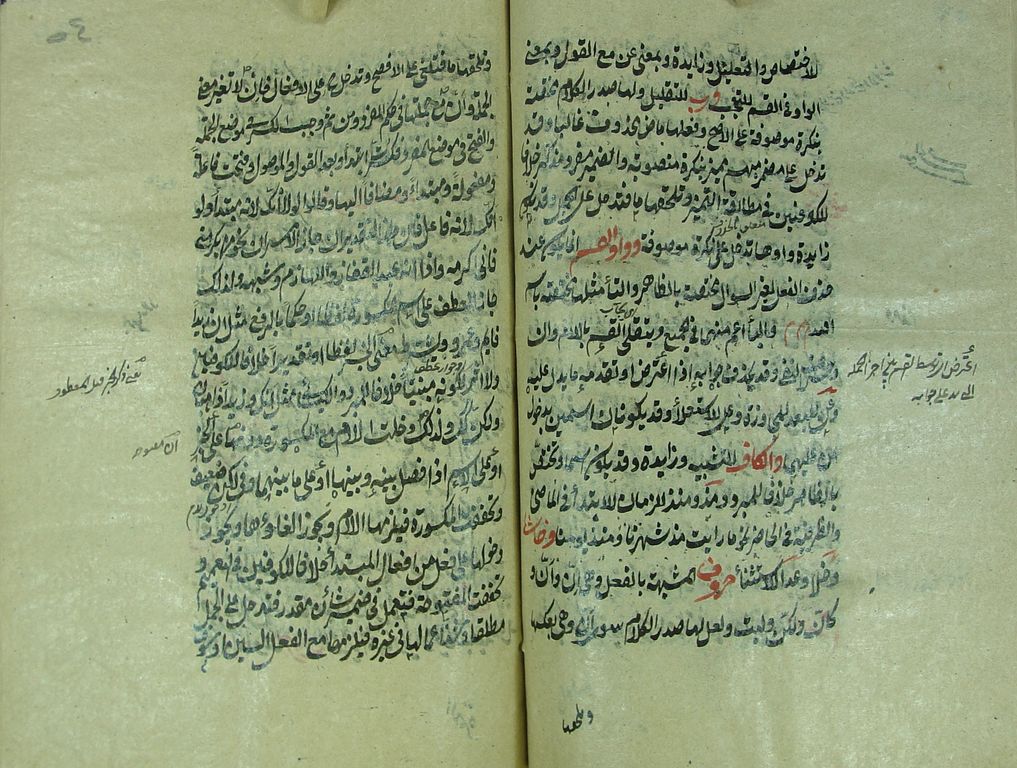 للاختصاص والتعليل وزايدة وبمعنى عن مع القول وبمعنى
الواو في القسم للتعجب ورب للتقليل ولها صدر الكلام مختصة
بنكرة موصوفة على الاصح وفعلها ماض محذوف غالبا وقد
تدخل على مضمر مبهم مميز بنكرة منصوبة والضمير مفرد مذكر خلافا
للكوفيين في مطابقة التمييز وتلحقها ما فتدخل على الجمل وقد تكون
زايدة وواوها تدخل على نكرة موصوفة وواو القسم انما يكون عند
حذف الفعل لغير السوال مختصة بالظاهر والتا مثلها مختصة باسم
الله والبا اعم منهما في الجميع ويتلقى القسم باللام وان
وحرف النفي وقد يحذف جوابه اذا اعترض او تقدمه ما يدل عليه
وعن للمجاوزة وعلى للاستعلا وقد يكونان اسمين بدخول
من عليهما والكاف للتشبيه وزايدة وقد يكون اسما وتختص
بالظاهر خلافا للمبرد ومذ ومنذ للزمان للابتدا في الماضي
والظرفية في الحاضر نحو ما رايت مذ شهرنا ومنذ يومنا وحاشا
وخلا وعدا للاستثناء حروف المشبهة بالفعل وهي ان وان و
كان ولكن وليت ولعل لها صدر الكلام سوى ان وهي بعكسها
وتلحقها
وتلحقها ما فتلغى على الافصح وتدخل ح على الافعال فان لا تغير معنى
الجملة وان مع جملتها في حكم المفرد ومن ثم وجب الكسر في موضع الجملة
والفتح في موضع المفرد فكسرت ابتداء وبعد القول والموصول وفتحت فاعلة
ومفعولة ومبتداة ومضافا اليها وقالوا لولا انك لانه مبتدا ولو
انك لانه فاعل فان جاز التقديران جاز الامران نحو من يكرمني
فاني اكرمه واذا انه عبد القفا واللهازم وشبهه ولذلك
جاز العطف على اسم المكسورة لفظا او حكما بالرفع مثل ان زيدا
قايم وعمرو ويشترط مضي الخبر لفظا او تقديرا خلافا للكوفيين
ولا اثر لكونه مبنيا خلافا للمبرد والكسائي مثل انك وزيد ذاهبان
ولكن كذلك ولذلك دخلت اللام مع المكسورة دونها على الخبر
او على الاسم اذا فصل بينه وبينها او على ما بينهما وفي لكن ضعيف
وتخفف المكسورة فيلزمها اللام ويجوز الغاوها ويجوز
دخولها على فعل من افعال المبتدا خلافا للكوفيين في التعميم
وتخفف المفتوحة فتعمل في ضمير شان مقدر فتدخل على الجمل
مطلقا وشذ اعمالها في غيره فيلزمها مع الفعل السين او سوف